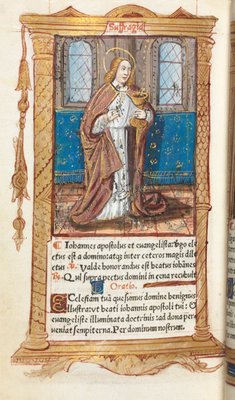 Suffragia
Iohannes apostolus et euangelista virgo ele
ctus est a domino: atqz inter ceteros magis dile
ctus Valde honorandus est beatus iohānes
Qui supra pectus domini in cena recubuit
Oratio.
Ecclesiam tuā quesumus domine benignus
illustra: vt beati iohannis apostoli tui:
euangeliste illuminata doctrinis: ad dona per
ueniat sempiterna. Per dominum nostrum.